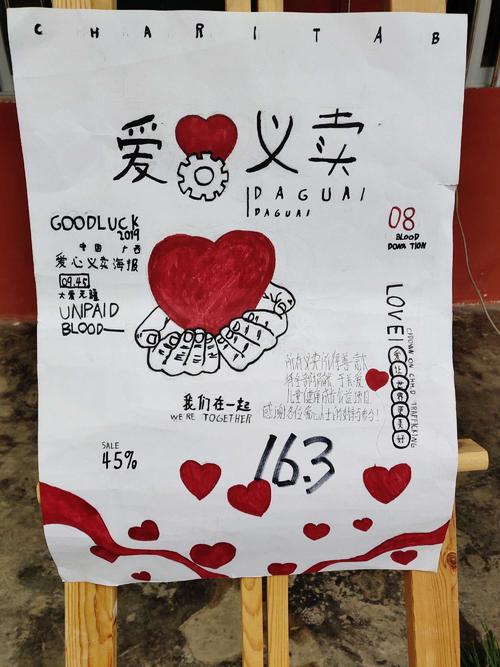 CHARITAB
爱 义卖
DAGUAI
DAGUAI
GOODLUCK
2019
中国 广西
爱心义卖海报
09.45
大爱无疆
UNPAID
BLOOD—
08
BLOOD
DONATION
LOVE!
CDOWN ON CHILD TRAFFICKING
爱让世界更美好
所有义卖所得善款
儿童健康成长公益项目
感谢各位爱心人士的支持与参与!
我们在一起
WE'RE TOGETHER
SALE
45%
16.3